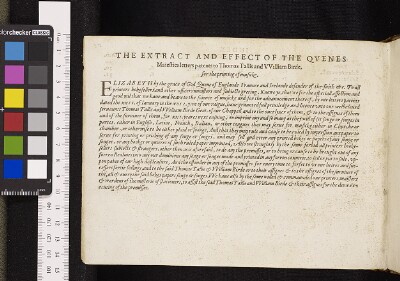 colorchecker CLASSIC
THE EXTRACT AND EFFECT OF THE QVENES
Maiesties letters patents to Thomas Tallis and VVilliam Birde,
for the printing of musicke.
ELIZABETH by the grace of God Quene of Englande Fraunce and Irelande defender of the faith &c. To all
printers bokesellers and other officers ministers and subiects greeting, Knowe ye, that we for the
good that we haue and beare to the science of musicke and for the aduauncement thereof, by our letters patents
dated the xxii. of Ianuary in the xvii. yere of our raigne, haue graunted full priuiledge and licence vnto our welbeloued
seruaunts Thomas Tallis and VVilliam Birde Gent. of our Chappell, and to the
and of the suruiuor of them, for xxi. yeares next ensuing, to imprint any and so many as they will of set songe or songes in
partes, either in English, Latine, French, Italian, or other tongues that may serue for musicke either in Churche or
chamber, or otherwise to be either plaid or soonge, And that they may rule and cause to be ruled by impression any paper to
serue for printing or pricking of any songe or songes, and may sell and vtter any printed bokes or papers of any songe or
songes, or any bookes or quieres of such ruled paper imprinted, Also we straightly by the same forbid all printers bokes-
sellers subiects & strangers, other then as is aforesaid, to do any the premisses, or to bring or cause to be brought out of any
forren Realmes into any our dominions any songe or songes made and printed in any forren countrie, to sell or put to sale,
vppon paine of our high displeasure, And the offender in any of the premisses for euery time to forfet to vs our heires and suc-
cessors fortie shillings, and to the said Thomas Tallis & VVilliam Birde or to their assignes & to the assignes of the suruiuor of
them, all & euery the said bokes papers songe or songes, VVe haue also by the same willed & commaunded our printers, maisters
& wardens of the misterie of stacioners, to assist the said Thomas Tallis and VVilliam Birde & their assignes for the dewe exe-
cuting of the premisses.